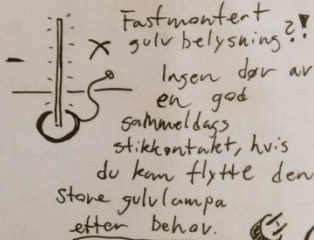 Fastmontert
gulvbelysning?!
Ingen dør av
en god
gammeldags
stikkontakt, hvis
du kan flytte den
store gulvlampa
etter behov.